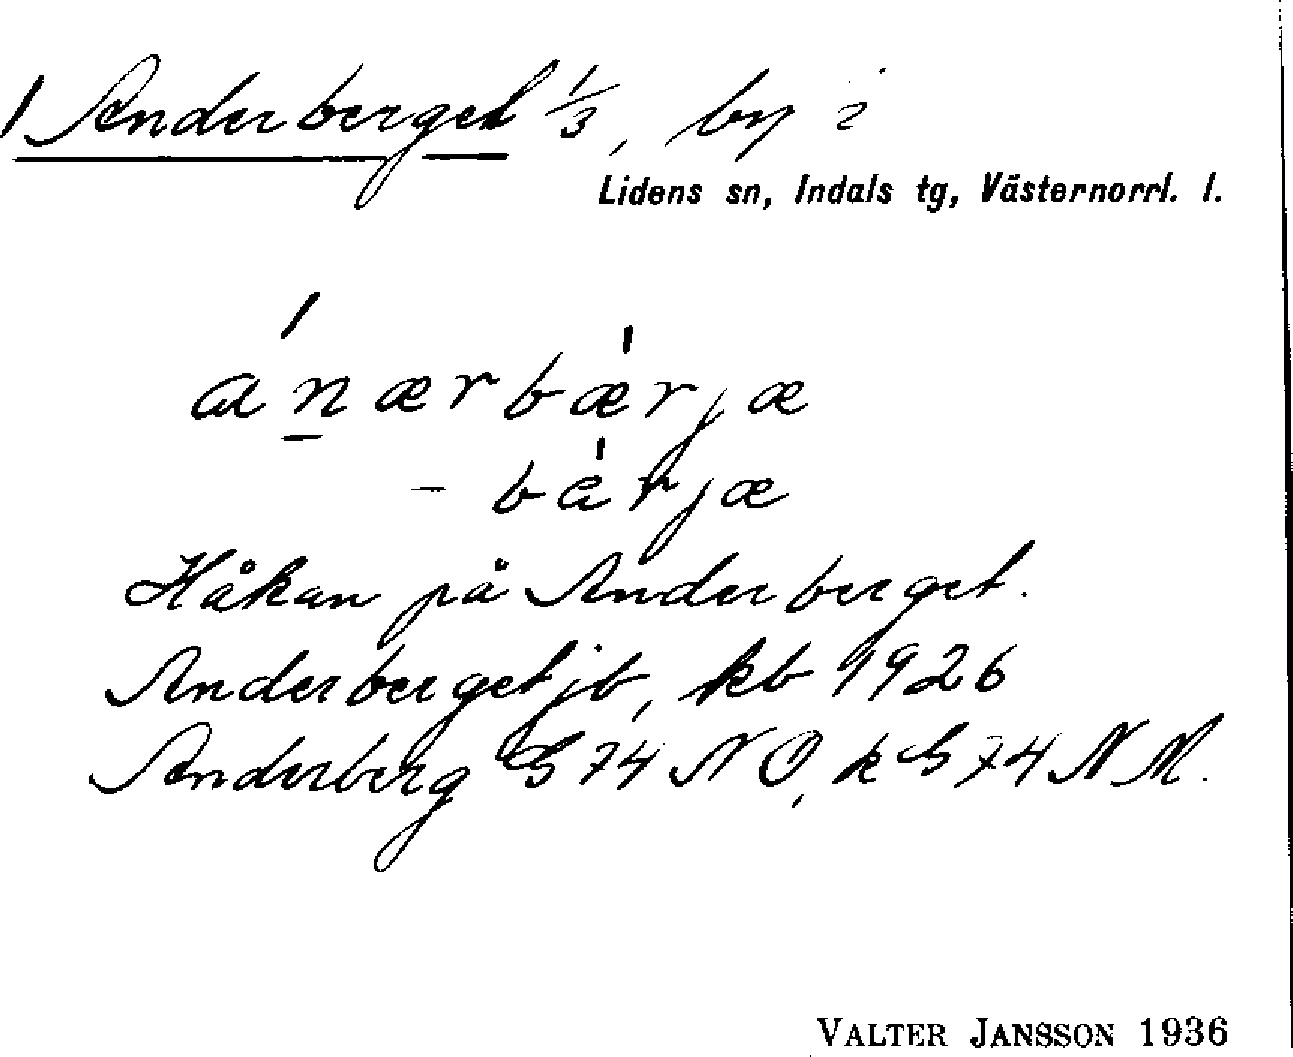 Anderberget 1/3, by i
Lidens sn, Indals tg, Västernorrl. l.
ánærbæ̍rjæ
- ba̍rjæ
Håkan på Anderberget.
Anderberget jb, kb 1926
Anderberg G 74 NO, k G 74 NM.
VALTER JANSSON 1936